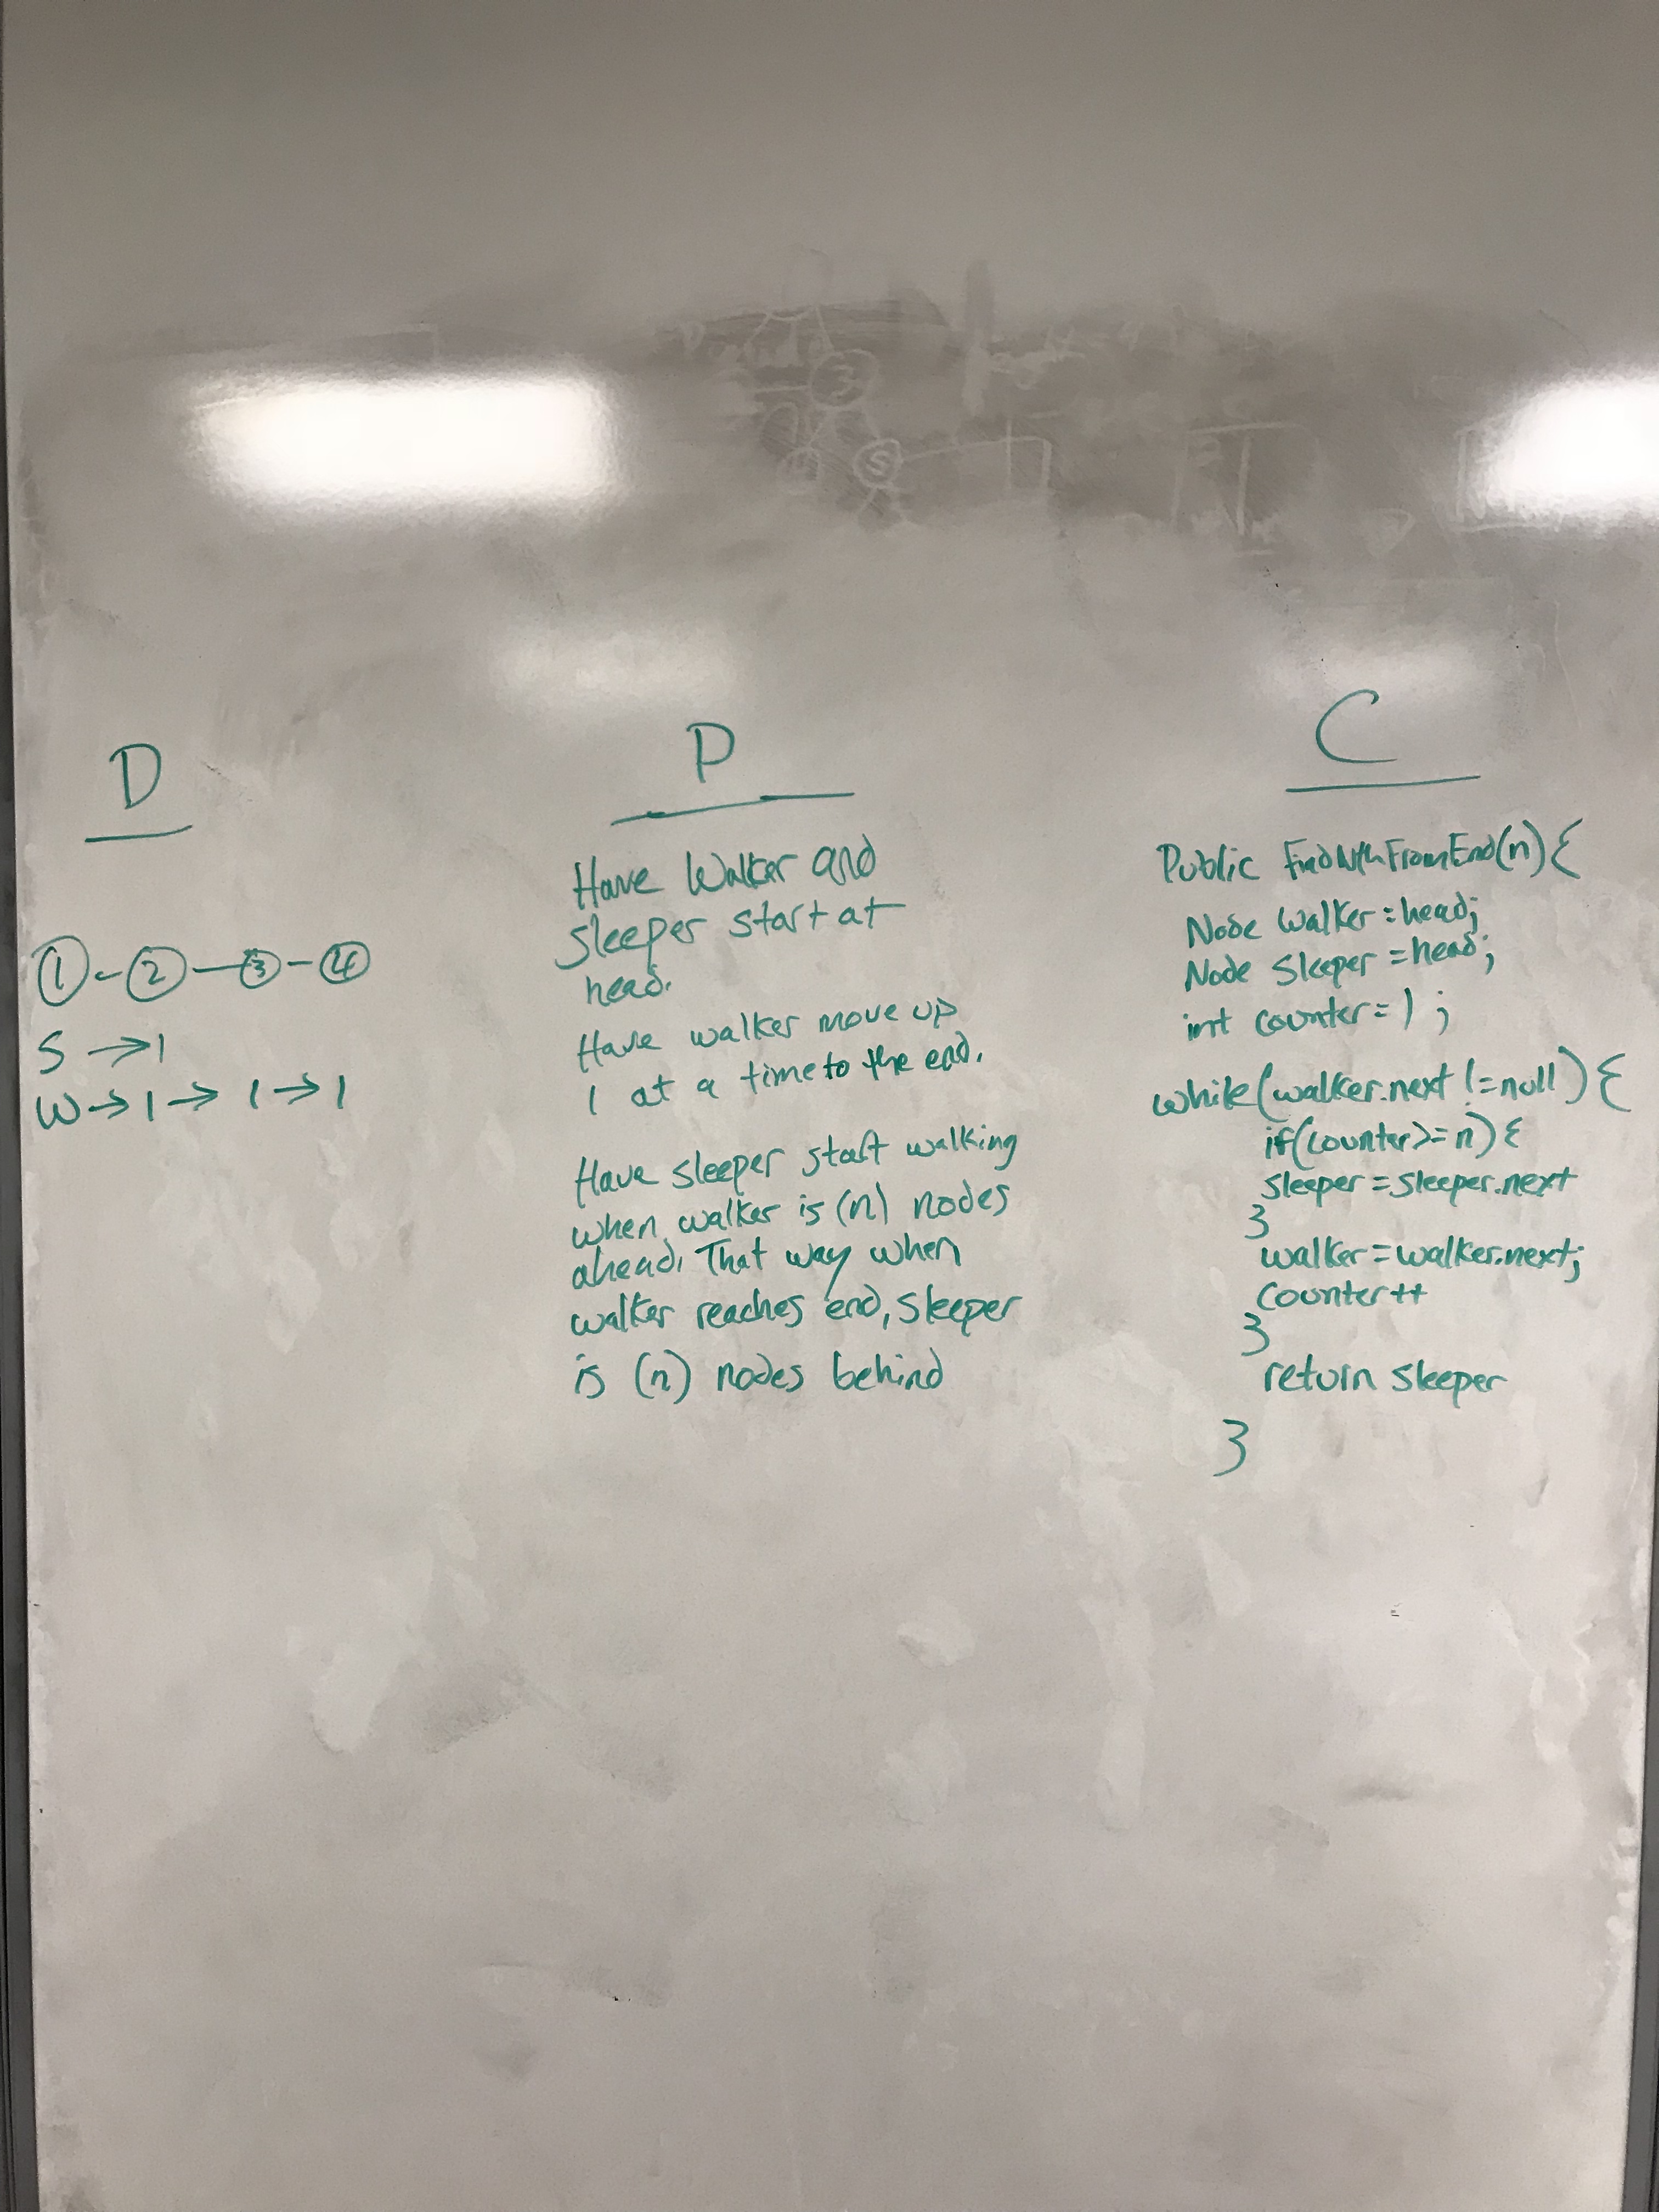 D
① - ② - ③ - ④
S → 1
W → 1 → 1 → 1
P
Have Walker and
sleeper start at
head.
Have walker move up
1 at a time to the end.
Have sleeper start walking
when walker is (n) nodes
ahead. That way when
walker reaches end, sleeper
is (n) nodes behind
C
Public FindNthFromEnd(n){
Node walker = head;
Node sleeper = head;
int counter = 1;
while(walker.next != null){
if(counter >= n){
sleeper = sleeper.next
}
walker = walker.next;
counter++
}
return sleeper
}
3
5